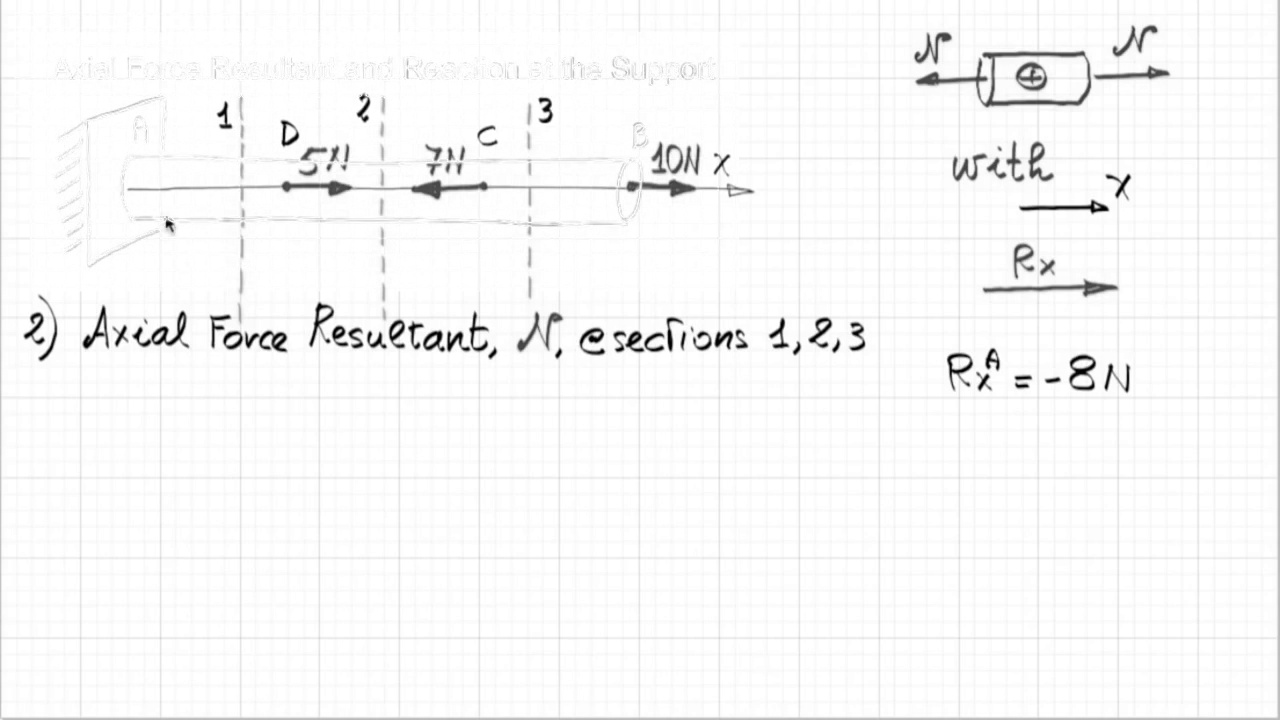 Axial Force Resultant and Reaction at the Support
A 1 D 5N 2 7N C 3 B 10N X
2) Axial Force Resultant, N, @sections 1,2,3
N + N
with
X
Rx
RxA = -8N